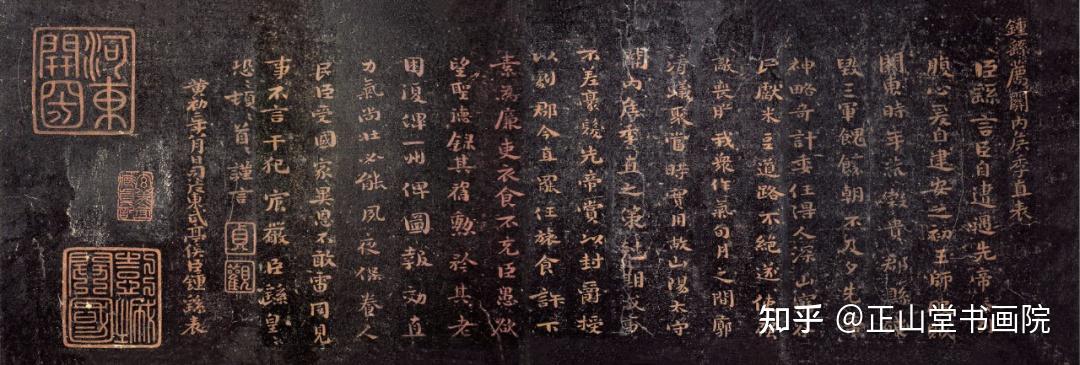 鍾繇薦關內侯季直表
臣繇言臣自遭遇先帝
腹心爰自建安之初王師
關東時年荒穀貴郡縣
毀三軍餽饟朝不及夕先
神略奇計委任得人深山窮
民獻米豆道路不絕遂使
敵喪膽我衆作氣旬月之間廓
清蟻聚當時實用故山陽太守
關內侯季直之策剋期成事
不差豪髮先帝賞以封爵授
以劇郡今直罷任旅食許下
素為廉吏衣食不充臣愚欲
望聖德錄其舊勳矜其老
困復俾一州俾圖報効直
力氣尚壯必能夙夜保養人
民臣受國家異恩不敢雷同見
事不言干犯宸嚴臣繇皇
恐頓首謹言
貞觀
黃初二年八月日司徒東武亭侯臣鍾繇表
河東
彭城
開國
知乎 @正山堂书画院